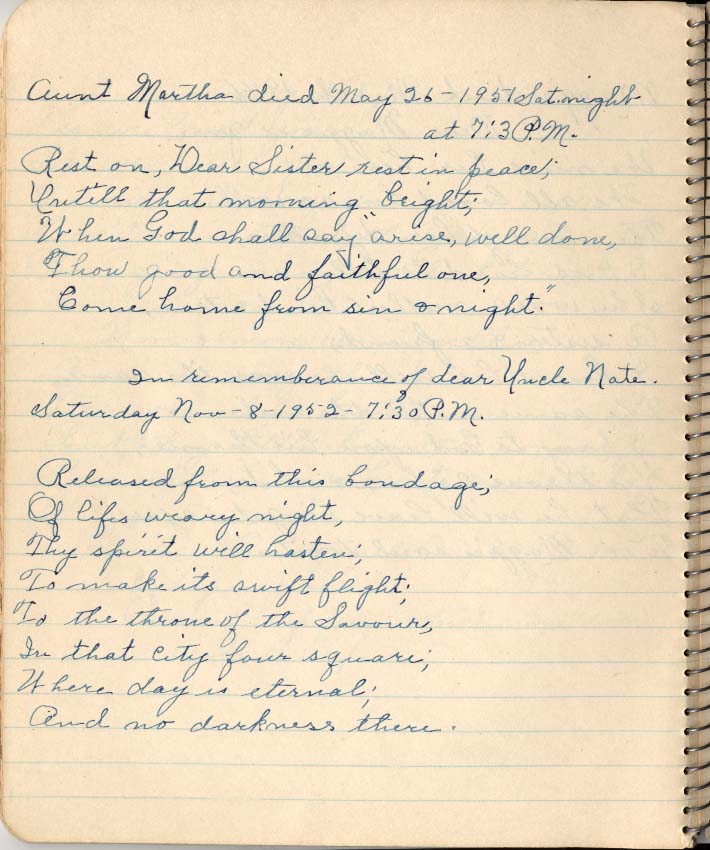 Aunt Martha died May 26-1951 Sat. night
at 7:3 P.M.
Rest on, Dear Sister rest in peace;
Untill that morning bright;
When God shall say "arise, well done,
Thow good and faithful one,
Come home from sin & night."
In rememberance of dear Uncle Nate.
Saturday Nov-8-1952-7:30 P.M.
Released from this bondage;
Of lifes weary night,
Thy spirit will hasten;
To make its swift flight;
To the throne of the Savour,
In that city four square;
Where day is eternal;
And no darkness there.